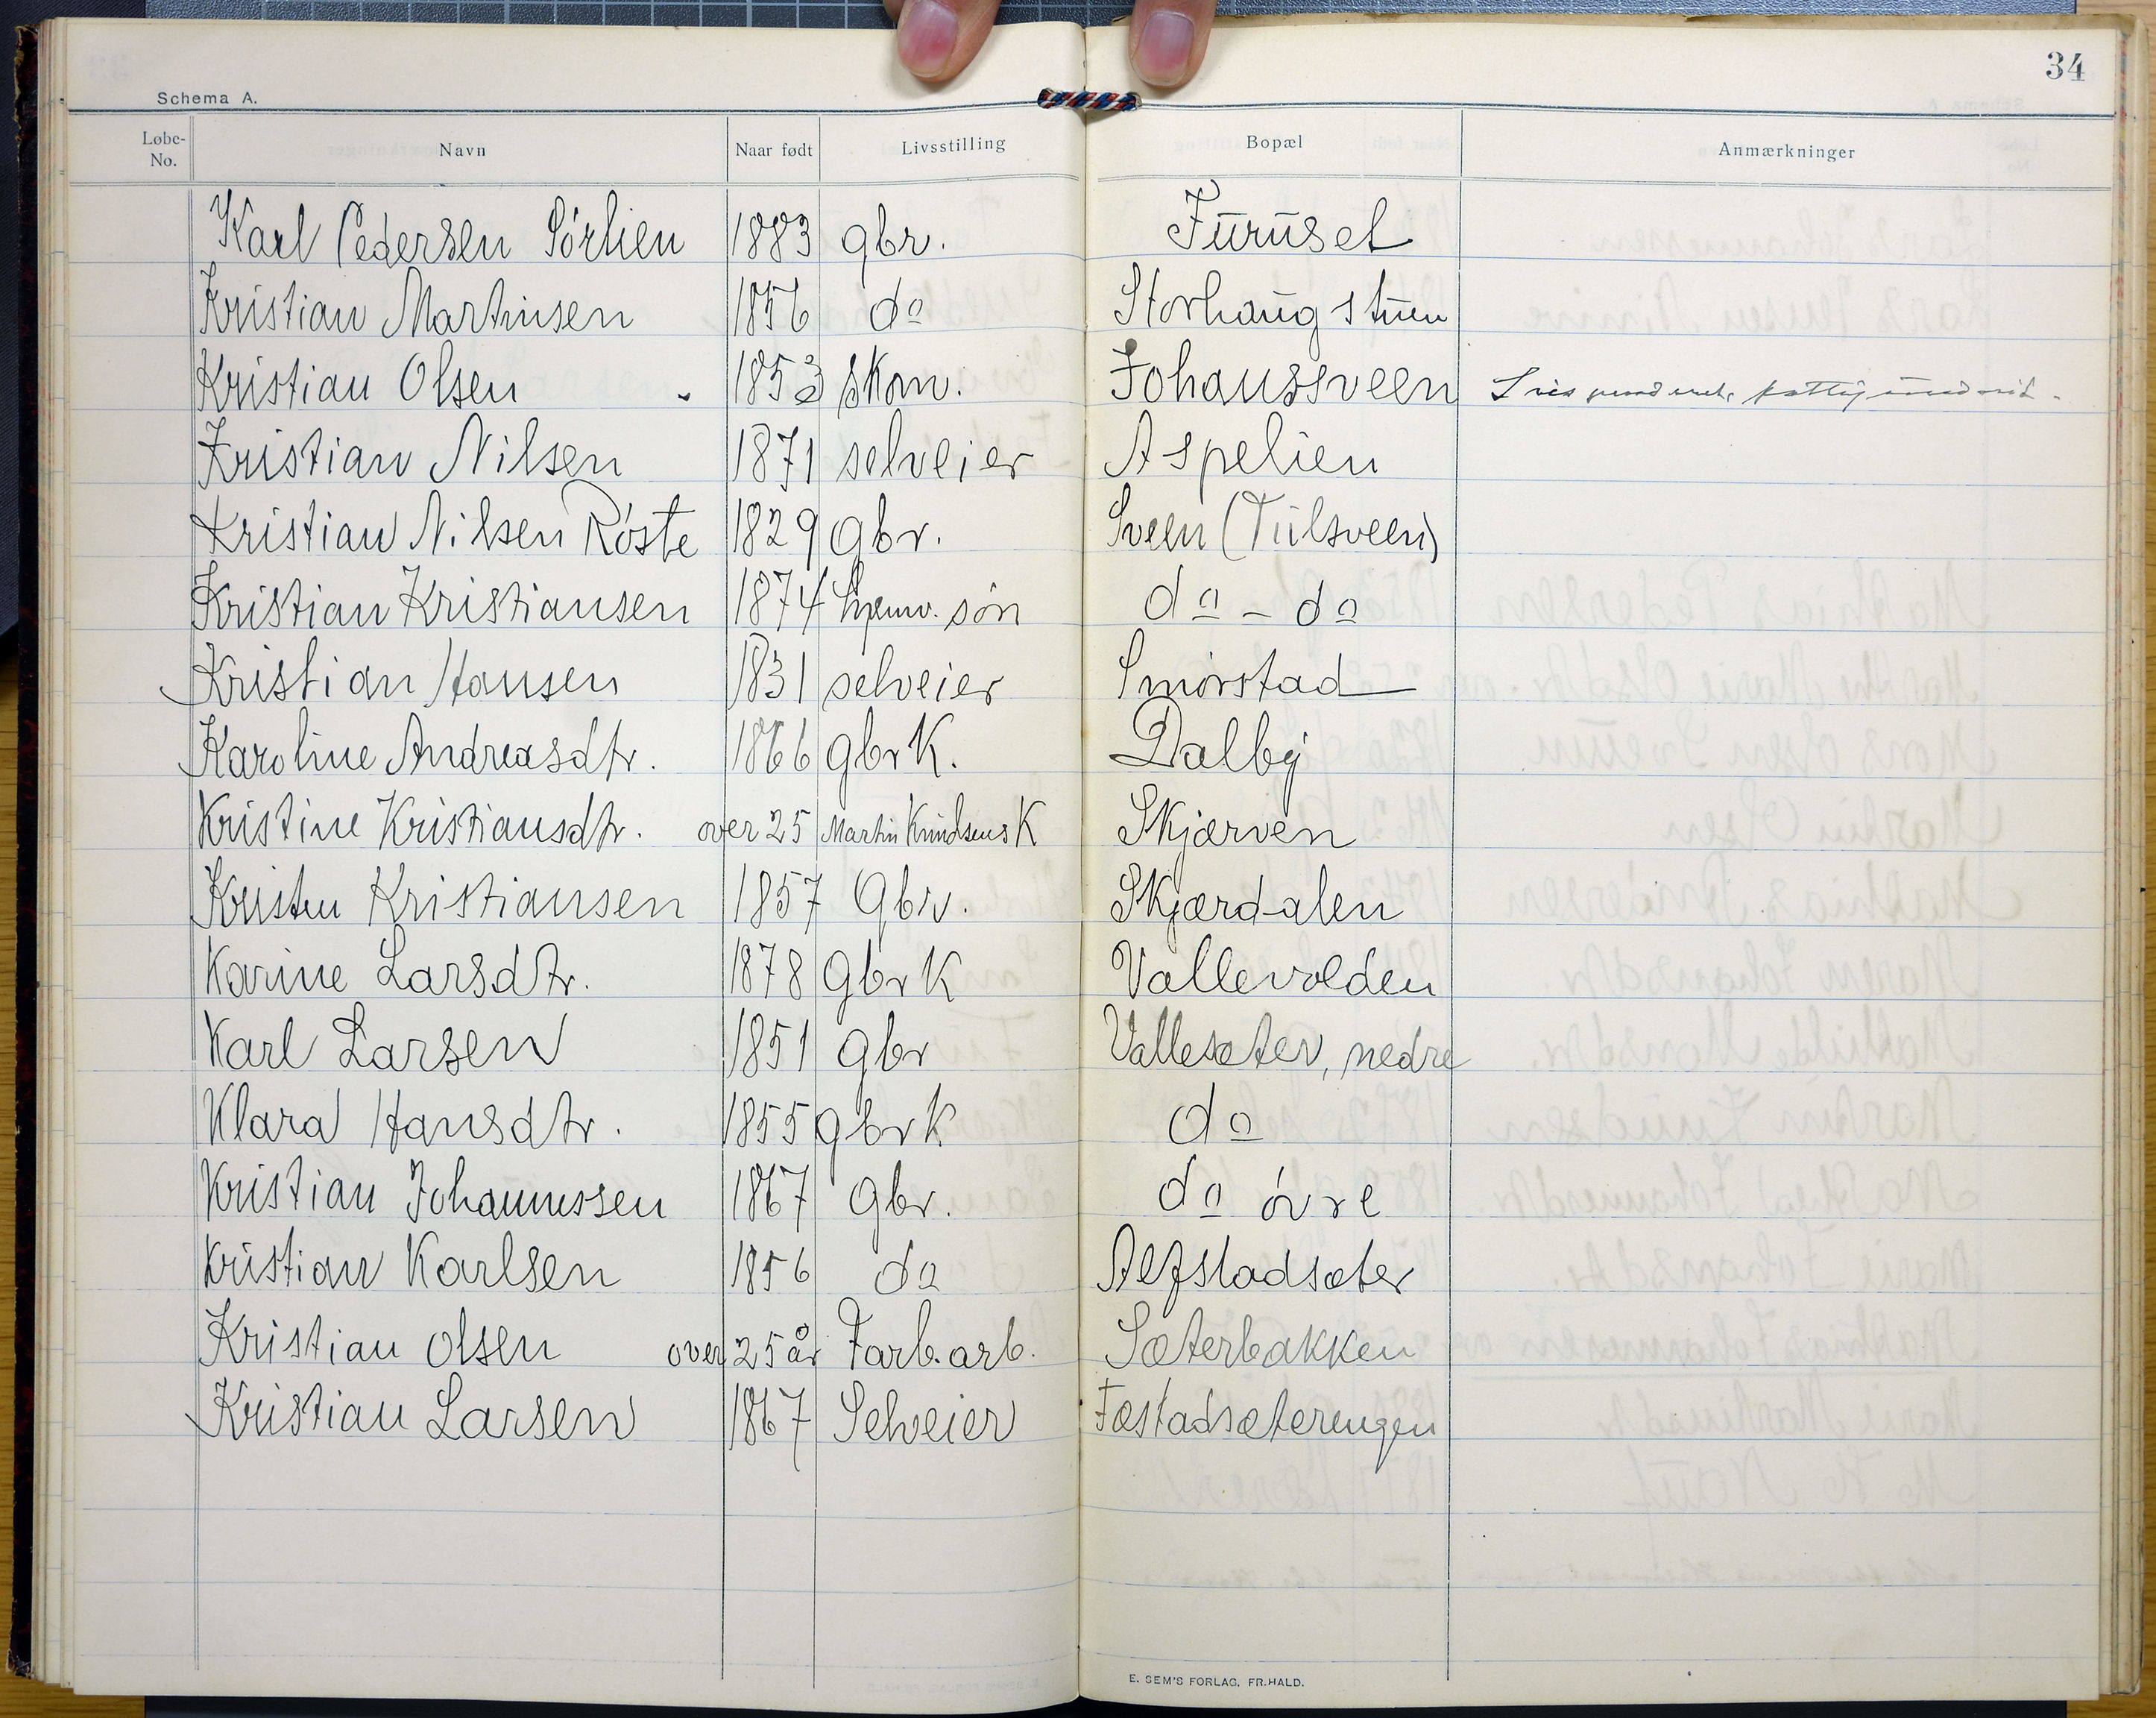 34
Schema A.
Løbe-No. Navn Naar født Livsstilling Bopæl Anmærkninger
Karl Pedersen Sórlien 1883 gbr. Furuset
Kristian Martinsen 1856 do Storhaugstuen
Kristian Olsen 1853 skom. Johanssveen
Kristian Nilsen 1871 selveier Aspelien
Kristian Nilsen Róste 1829 gbr. Sveen (Tulsveen)
Kristian Kristiansen 1874 hjemv. són do - do
Kristian Hansen 1831 selveier Smórstad
Karoline Andreasdtr. 1866 gbrK. Dalby
Kristine Kristiansdtr. over 25 Martin Knudsens K Skjærven
Kristen Kristiansen 1857 Gbr. Skjærdalen
Karine Larsdtr. 1878 GbrK Vallevolden
Karl Larsen 1851 Gbr Vallesæter, nedre
Klara Hansdtr. 1855 gbrK do
Kristian Johannessen 1867 Gbr. do óvre
Kristian Karlsen 1856 do Alfstadsæter
Kristian Olsen over 25 år Farb.arb. Sæterbakken
Kristian Larsen 1867 Selveier Fæstadsæterengen
E. SEM'S FORLAG, FR.HALD.